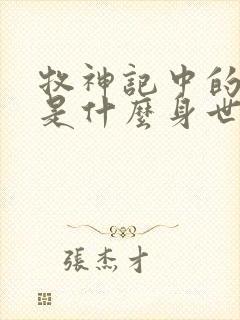 牧神記中的
是什麼身世
張杰才